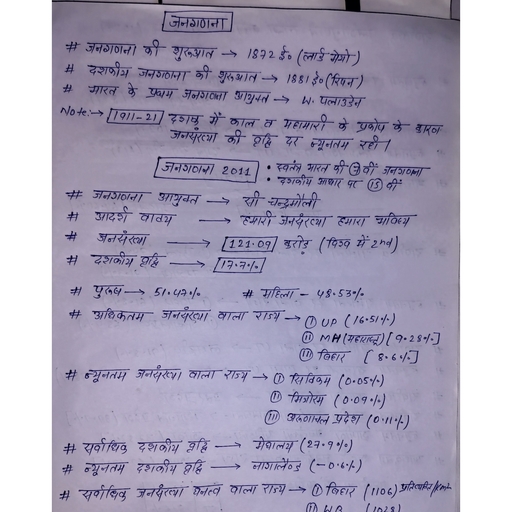 जनगणना
# जनगणना की शुरुआत → 1872 ई० (लार्ड मेयो)
# दशकीय जनगणना की शुरुआत → 1881 ई० (रिपन)
# भारत के प्रथम जनगणना आयुक्त → W. प्लाउडेन
Note:→ [1911-21] दशक में काल व महामारी के प्रकोप के कारण
जनसंख्या की वृद्धि दर न्यूनतम रही।
जनगणना 2011 • स्वतंत्र भारत की 7 वीं जनगणना
• दशकीय आधार पर 15 वीं
# जनगणना आयुक्त → सी चन्द्रमौली
# आदर्श वाक्य → हमारी जनसंख्या हमारा भविष्य
# जनसंख्या → [121.09] करोड़ (विश्व में 2nd)
# दशकीय वृद्धि → [17.7%]
# पुरुष → 51.47% # महिला - 48.53%
# अधिकतम जनसंख्या वाला राज्य → (i) UP (16.51%)
(ii) MH (महाराष्ट्र) [9.28%]
(iii) बिहार [8.6%]
# न्यूनतम जनसंख्या वाला राज्य → (i) सिक्किम (0.05%)
(ii) मिजोरम (0.09%)
(iii) अरुणाचल प्रदेश (0.11%)
# सर्वाधिक दशकीय वृद्धि → मेघालय (27.9%)
# न्यूनतम दशकीय वृद्धि → नागालैण्ड (-0.6%)
# सर्वाधिक जनसंख्या घनत्व वाला राज्य → (i) बिहार (1106)
(ii) WB (1028)